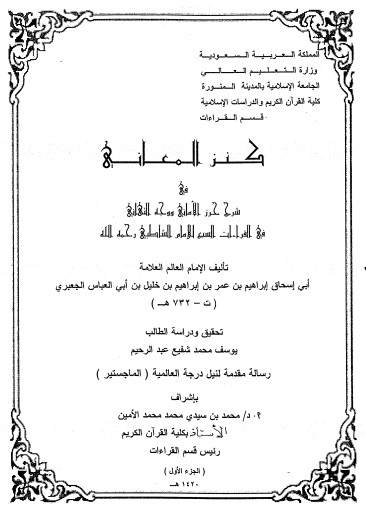 المملكة العربية السعودية
وزارة التعليم العالي
الجامعة الإسلامية بالمدينة المنورة
كلية القرآن الكريم والدراسات الإسلامية
قسم القراءات
كنز المعاني
في
شرح حرز الأماني ووجه التهاني
في القراءات السبع للإمام الشاطبي رحمه الله
تأليف الإمام العالم العلامة
أبي إسحاق إبراهيم بن عمر بن إبراهيم بن خليل بن أبي العباس الجعبري
( ت – ٧٣٢ هـ )
تحقيق ودراسة الطالب
يوسف محمد شفيع عبد الرحيم
رسالة مقدمة لنيل درجة العالمية ( الماجستير )
بإشراف
د/ محمد بن سيدي محمد محمد الأمين
الأستاذ بكلية القرآن الكريم
رئيس قسم القراءات
( الجزء الأول )
١٤٢٠ هـ